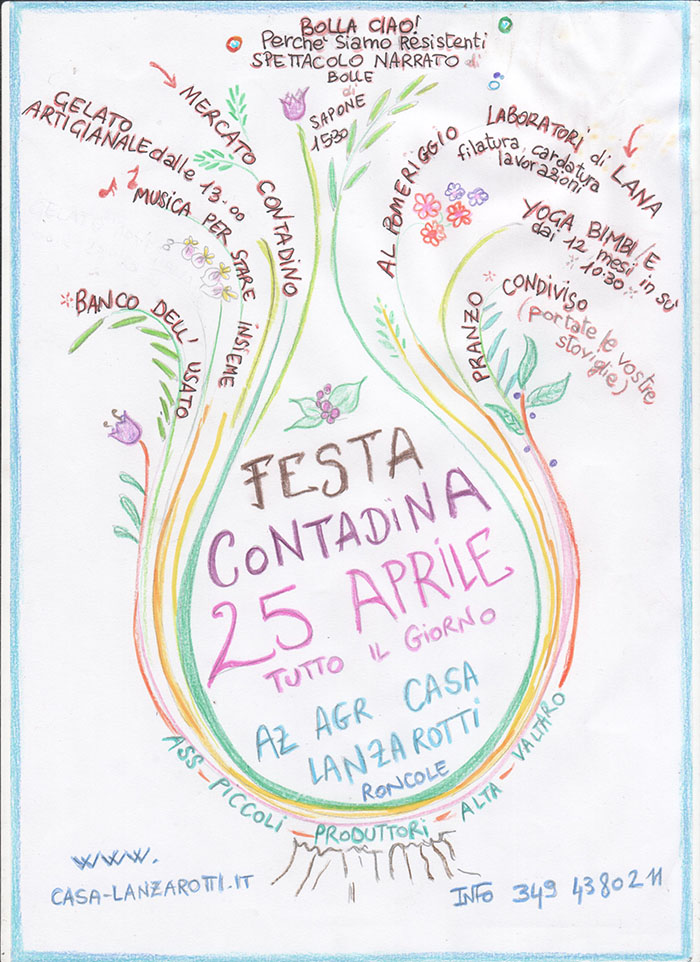 BOLLA CIAO!
Perchè siamo Resistenti
SPETTACOLO NARRATO di
BOLLE
di
SAPONE
1530
MERCATO CONTADINO
GELATO
ARTIGIANALE dalle 13.00
MUSICA PER STARE INSIEME
BANCO DELL' USATO
AL POMERIGGIO
LABORATORI di LANA
filatura, cardatura
lavorazioni
YOGA BIMBI/E
dai 12 mesi in sù
10:30
PRANZO CONDIVISO
(portate le vostre
stoviglie)
FESTA
CONTADINA
25 APRILE
TUTTO IL GIORNO
AZ AGR CASA
LANZAROTTI
RONCOLE
ASS PICCOLI PRODUTTORI ALTA VALTARO
www.
CASA-LANZAROTTI.IT
INFO 349 4380211